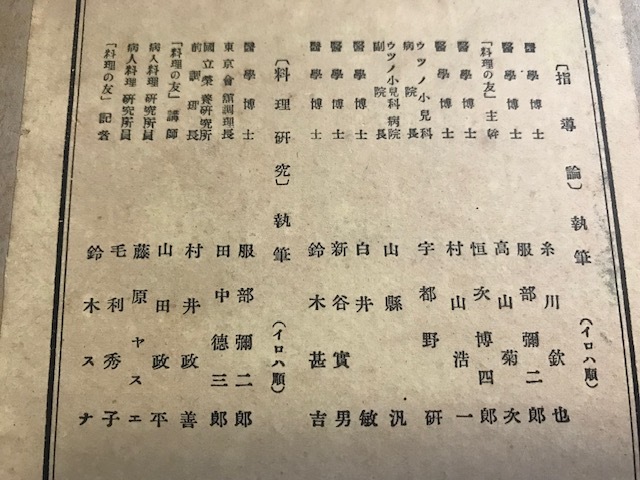 〔指導論〕執筆(イロハ順)
糸川欽也
醫學博士 服部彌二郎
醫學博士 高山菊次
「料理の友」主幹 恒次博四郎
醫學博士 村山浩一
醫學博士
ウツノ小兒科
病院長 宇都野研
ウツノ小兒科病院
副院長 山縣汎
醫學博士 白井敏
醫學博士 新谷實男
醫學博士 鈴木甚吉
〔料理研究〕執筆(イロハ順)
醫學博士 服部彌二郎
東京會館調理長 田中德三郎
國立榮養研究所
前調理長 村井政善
「料理の友」講師 山田政平
病人料理研究所員 藤原ヤスエ
病人料理研究所員 毛利秀子
「料理の友」記者 鈴木スナ